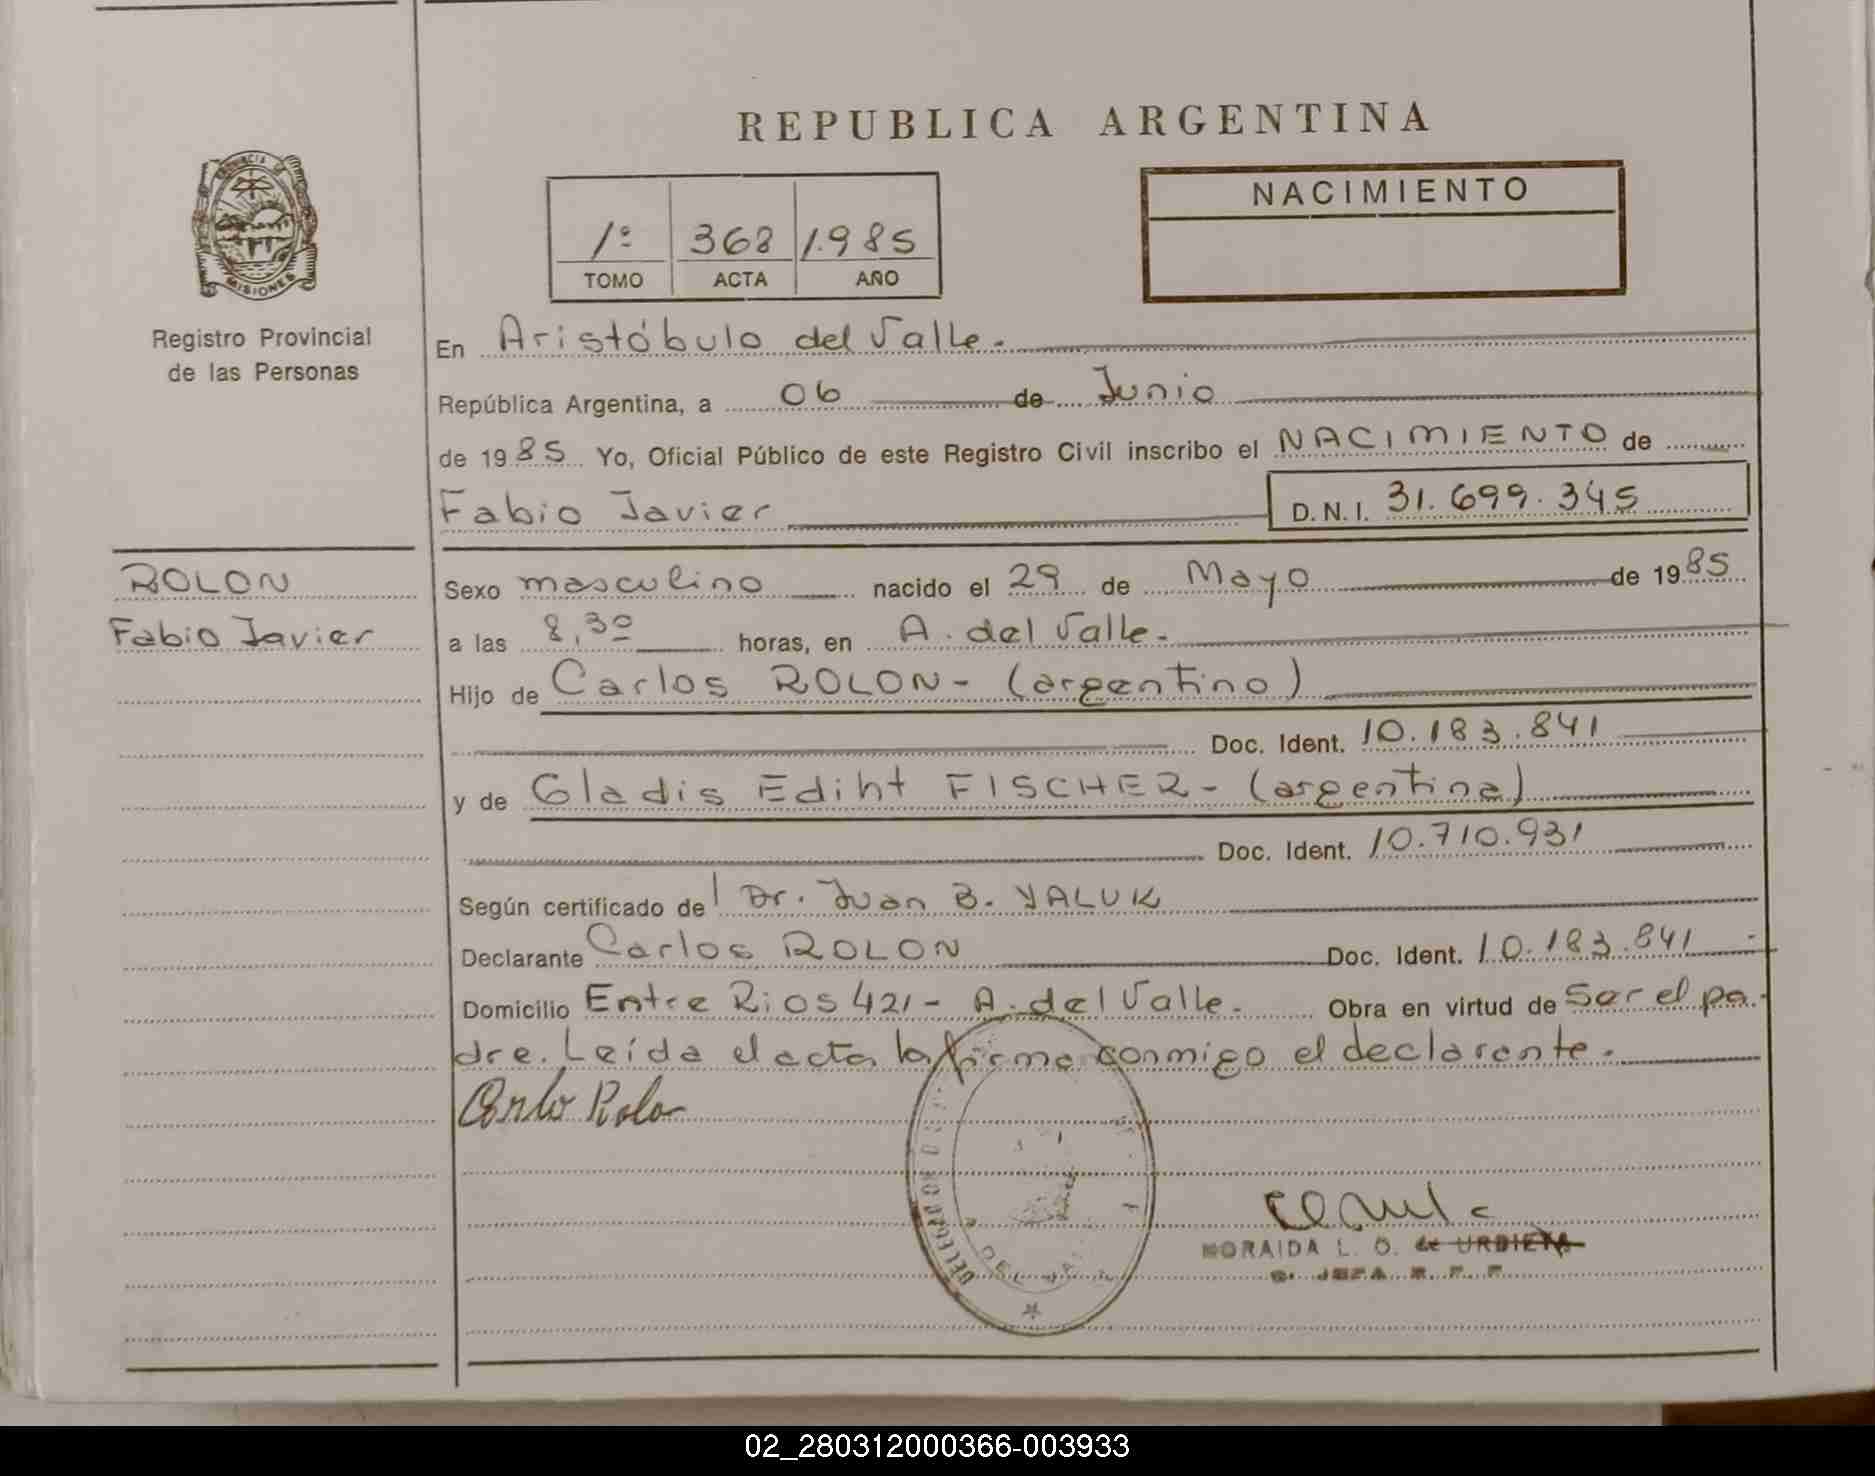 REPUBLICA ARGENTINA
PROVINCIA DE
MISIONES
Registro Provincial
de las Personas
1º 368 1.985
TOMO ACTA AÑO
NACIMIENTO
En Aristóbulo del Valle.
República Argentina, a 06 de Junio
de 1985 Yo, Oficial Público de este Registro Civil inscribo el NACIMIENTO de
Fabio Javier D.N.I. 31.699.345
ROLON
Fabio Javier
Sexo masculino nacido el 29 de Mayo de 1985
a las 8,30 horas, en A. del Valle.
Hijo de Carlos ROLON - (argentino)
Doc. Ident. 10.183.841
y de Gladis Ediht FISCHER - (argentina)
Doc. Ident. 10.710.931
Según certificado del Dr. Juan B. YALUK
Declarante Carlos ROLON Doc. Ident. 10.183.841
Domicilio Entre Rios 421 - A. del Valle. Obra en virtud de ser el pa-
dre. Leída el acta la firma conmigo el declarante.
Carlo Rolon
NORAIDA L. O. de URBIETA
JEFA
02_280312000366-003933